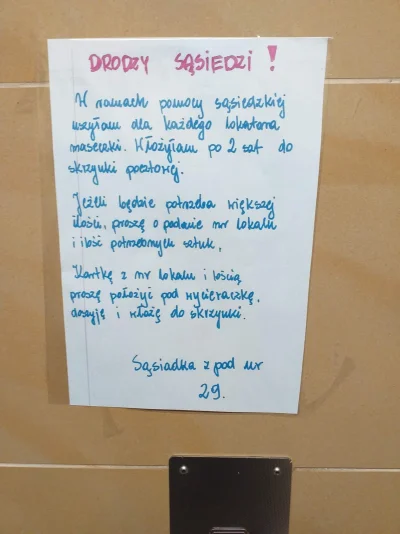 DRODZY SĄSIEDZI !
W ramach pomocy sąsiedzkiej
uszyłam dla każdego lokatora
maseczki. Włożyłam po 2 szt do
skrzynki pocztowej.
Jeżeli będzie potrzeba większej
ilości, proszę o podanie nr lokalu
i ilość potrzebnych sztuk,
Kartkę z nr lokalu i ilością
proszę położyć pod wycieraczkę,
doszyję i włożę do skrzynki.
Sąsiadka z pod nr
29.